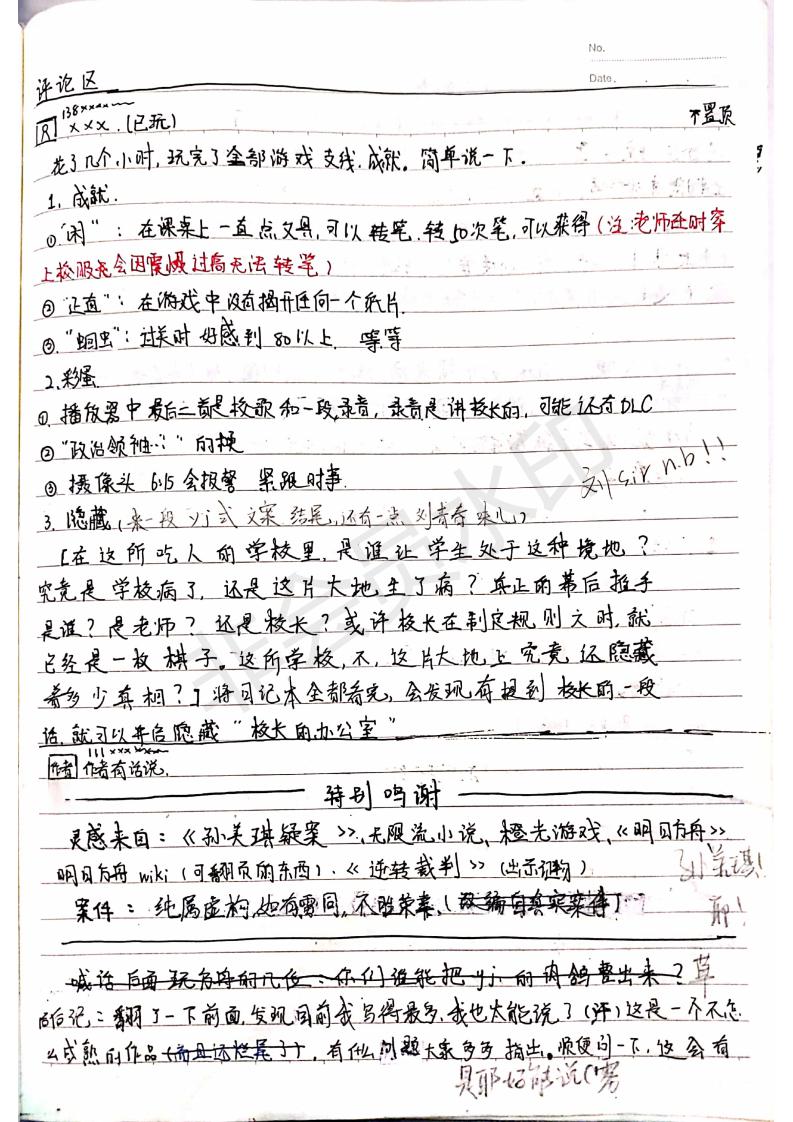 No.
Date.
评论区
138xxxx
R xxx.(已玩) 不置顶
花了几个小时,玩完了全部游戏支线.成就。简单说一下.
1.成就.
①"闲":在课桌上一直点文具,可以转笔.转50次笔,可以获得(注:老师在时穿
上校服先会因震慑过高无法转笔)
②"正直":在游戏中没有揭开任何一个纸片.
③."蛔虫":过关时好感到80以上. 等等
2.彩蛋
①播放器中最后二首是校歌和一段录音,录音是讲校长的,可能还有DLC
②"政治领袖∵"的梗
③摄像头 6:15会报警 紧跟时事.
刘sir n.b!!
3.隐藏(来一段yj式文案结尾,还有一点刘青春味儿)
[在这所吃人的学校里,是谁让学生处于这种境地?
究竟是学校病了,还是这片大地生了病?真正的幕后推手
是谁?是老师?还是校长?或许校长在制定规则之时,就
已经是一枚棋子。这所学校,不,这片大地上究竟还隐藏
着多少真相?]将日记本全都看完,会发现有提到校长的一段
话.就可以开启隐藏"校长的办公室"
111xxx
作者 作者有话说.
特别鸣谢
灵感来自:《孙美琪疑案》、无限流小说、橙光游戏、《明日方舟》
明日方舟wiki(可翻页的东西).《逆转裁判》(出示证物)
案件:纯属虚构,如有雷同,不胜荣幸,(改编自真实案件)
喊话后面玩方舟的几位:你们谁能把yj的肉鸽整出来?草
后记:翻了一下前面,发现目前我写得最多,我也太能说了(汗)这是一个不怎
么成熟的作品(而且还烂尾了).有什么问题大家多多指出。顺便问一下,这会有
是耶好能说(雾